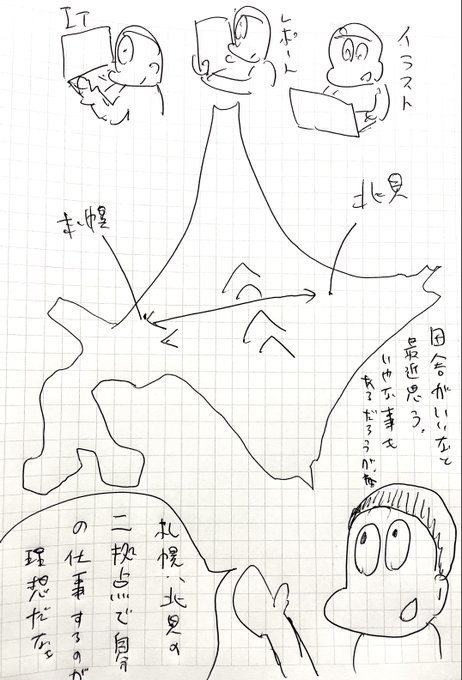 IT
レポート
イラスト
札幌
北見
田舎がいいなと
最近思う。
いやな事も
あるだろうが、な
札幌、北見の
二拠点で自分
の仕事するのが
理想だなぁ